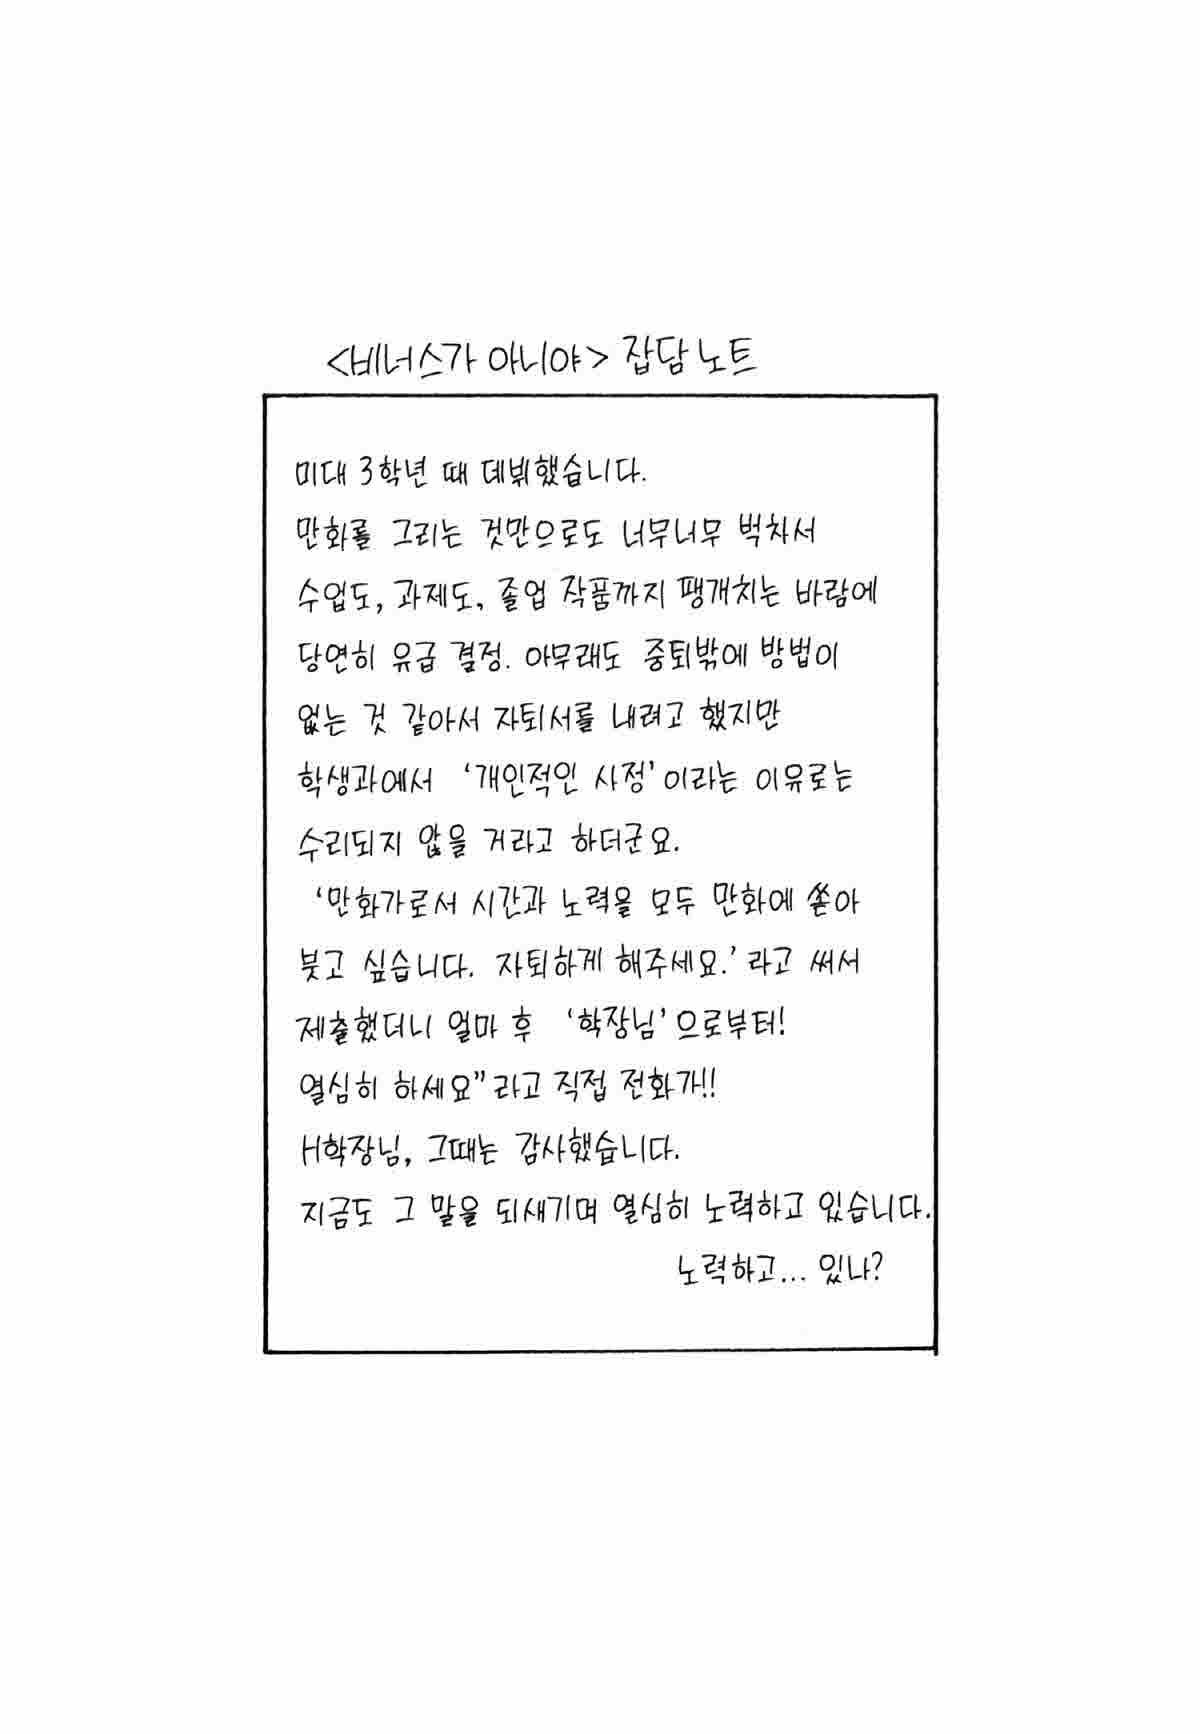 <비너스가 아니야> 잡담 노트
미대 3학년 때 데뷔했습니다.
만화를 그리는 것만으로도 너무너무 벅차서
수업도, 과제도, 졸업 작품까지 팽개치는 바람에
당연히 유급 결정. 아무래도 중퇴밖에 방법이
없는 것 같아서 자퇴서를 내려고 했지만
학생과에서 '개인적인 사정'이라는 이유로는
수리되지 않을 거라고 하더군요.
'만화가로서 시간과 노력을 모두 만화에 쏟아
붓고 싶습니다. 자퇴하게 해주세요.'라고 써서
제출했더니 얼마 후 '학장님'으로부터!
열심히 하세요"라고 직접 전화가!!
H학장님, 그때는 감사했습니다.
지금도 그 말을 되새기며 열심히 노력하고 있습니다.
노력하고... 있나?